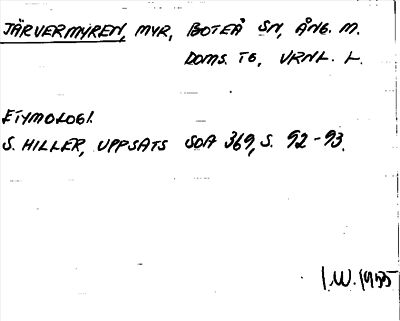 JÄRVERMYREN, MYR, BOTEÅ SN, ÅNG. M.
DOMS. TG, VRNL. L.
ETYMOLOGI.
S. HILLER, UPPSATS SOA 369, S. 92-93.
I.W. 1955